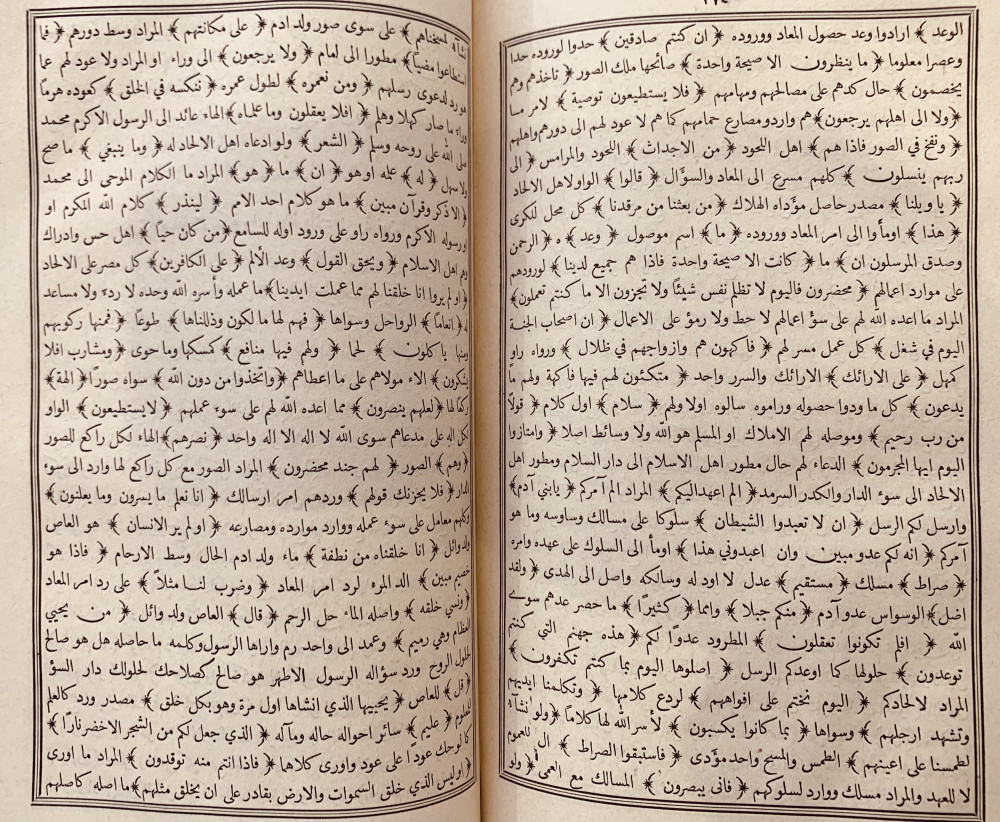 ٣٧٤
الوعد ﴾ ارادوا وعد حصول المعاد ووروده ﴿ ان كنتم صادقين ﴾ حدوا لوروده حدا
وعصرا معلوما ﴿ ما ينظرون الا صيحة واحدة ﴾ صائحها ملك الصور ﴿ تاخذهم وهم
يخصمون ﴾ حال كدهم على مصالحهم ومهامهم ﴿ فلا يستطيعون توصية ﴾ لامر مسا
﴿ ولا الى اهلهم يرجعون ﴾ هم واردو مصارع حمامهم كما هم لا عود لهم الى دورهم واهلهم
﴿ ونفخ في الصور فاذا هم ﴾ اهل اللحود ﴿ من الاجداث ﴾ اللحود والمرامس ﴿ الى
ربهم ينسلون ﴾ كلهم مسرع الى المعاد والسؤال ﴿ قالوا ﴾ الواو لاهل الالحاد
﴿ يا ويلنا ﴾ مصدر حاصل مؤداه الهلاك ﴿ من بعثنا من مرقدنا ﴾ كل محل للكرى
﴿ هذا ﴾ اومأوا الى امر المعاد ووروده ﴿ ما ﴾ اسم موصول ﴿ وعد ﴾ ه ﴿ الرحمن
وصدق المرسلون ان ﴾ ما ﴿ كانت الا صيحة واحدة فاذا هم جميع لدينا ﴾ لورودهم
على موارد اعمالهم ﴿ محضرون فاليوم لا تظلم نفس شيئا ولا تجزون الا ما كنتم تعملون ﴾
المراد ما اعده الله لهم على سؤ اعمالهم لا حط ولا رمؤ على الاعمال ﴿ ان اصحاب الجنة
اليوم في شغل ﴾ كل عمل مسر لهم ﴿ فاكهون هم وازواجهم في ظلال ﴾ ورواه راو
كهل ﴿ على الارائك ﴾ الارائك والسرر واحد ﴿ متكئون لهم فيها فاكهة ولهم ما
يدعون ﴾ كل ما ودوا حصوله وراموه سالوه اولا ولهم ﴿ سلام ﴾ اول كلام ﴿ قولا
من رب رحيم ﴾ وموصله لهم الاملاك او المسلم هو الله ولا وسائط اصلا ﴿ وامتازوا
اليوم ايها المجرمون ﴾ الدعاء لهم حال مطور اهل الاسلام الى دار السلام ومطور اهل
الالحاد الى سوء الدار والكدر السرمد ﴿ الم اعهد اليكم ﴾ المراد الم آمركم ﴿ يا بني آدم ﴾
وارسل لكم الرسل ﴿ ان لا تعبدوا الشيطان ﴾ سلوكا على مسالك وساوسه وما هو
آمركم ﴿ انه لكم عدو مبين وان اعبدوني هذا ﴾ اومأ الى السلوك على عهده وامره
﴿ صراط ﴾ مسلك ﴿ مستقيم ﴾ عدل لا اود له وسالكه واصل الى الهدى ﴿ ولقد
اضل ﴾ الوسواس عدو آدم ﴿ منكم جبلا ﴾ وامما ﴿ كثيرا ﴾ ما حصر عدهم سوى
الله ﴿ افلم تكونوا تعقلون ﴾ المطرود عدوا لكم ﴿ هذه جهنم التي كنتم
توعدون ﴾ حلولها كما اوعدكم الرسل ﴿ اصلوها اليوم بما كنتم تكفرون ﴾
المراد لالحادكم ﴿ اليوم نختم على افواههم ﴾ لردع كلامها ﴿ وتكلمنا ايديهم
وتشهد ارجلهم ﴾ وسواها ﴿ بما كانوا يكسبون ﴾ لأسر الله لها كلاما ﴿ ولو نشاء
لطمسنا على اعينهم ﴾ الطمس والمسح واحد مؤدى ﴿ فاستبقوا الصراط ﴾ ال للعموم
لا للعهد والمراد مسلك ووارد لسلوكهم ﴿ فانى يبصرون ﴾ المسالك مع العمى ﴿ ولو
نشاء لمسخناهم ﴾ على سوى صور ولد ادم ﴿ على مكانتهم ﴾ المراد وسط دورهم ﴿ فما
استطاعوا مضيا ﴾ مطورا الى امام ﴿ ولا يرجعون ﴾ الى وراء او المراد ولا عود لهم عما
هو رد لدعوى رسلهم ﴿ ومن نعمره ﴾ لطول عمره ﴿ ننكسه في الخلق ﴾ كعوده هرما
وراء ما صار كهلا وهلم ﴿ افلا يعقلون وما علمناه ﴾ الهاء عائد الى الرسول الاكرم محمد
صلى الله على روحه وسلم ﴿ الشعر ﴾ ولو ادعاه اهل الالحاد له ﴿ وما ينبغي ﴾ ما صح
ولا سهل ﴿ له ﴾ عمله او هو ﴿ ان ﴾ ما ﴿ هو ﴾ المراد ما الكلام الموحى الى محمد
﴿ الا ذكر وقرآن مبين ﴾ ما هو كلام احد الامم ﴿ لينذر ﴾ كلام الله المكرم او
رسوله الاكرم ورواه راو على ورود اوله للسامع ﴿ من كان حيا ﴾ اهل حس وادراك
وهم اهل الاسلام ﴿ ويحق القول ﴾ وعد الألم ﴿ على الكافرين ﴾ كل مصر على الالحاد
﴿ او لم يروا انا خلقنا لهم مما عملت ايدينا ﴾ ما عمله وأسره الله وحده لا ردء ولا مساعد
له ﴿ انعاما ﴾ الرواحل وسواها ﴿ فهم لها مالكون وذللناها ﴾ طوعا ﴿ فمنها ركوبهم
ومنها ياكلون ﴾ لحما ﴿ ولهم فيها منافع ﴾ كمسكها وما حوى ﴿ ومشارب افلا
يشكرون ﴾ الاء مولاهم على ما اعطاهم ﴿ واتخذوا من دون الله ﴾ سواه صورا ﴿ الهة ﴾
ركعا لها ﴿ لعلهم ينصرون ﴾ مما اعده الله لهم على سوء عملهم ﴿ لا يستطيعون ﴾ الواو
لكل اله على مدعاهم سوى الله لا اله الا اله واحد ﴿ نصرهم ﴾ الهاء لكل راكع للصور
﴿ وهم ﴾ الصور ﴿ لهم جند محضرون ﴾ المراد الصور مع كل راكع لها وارد الى سوء
الدار ﴿ فلا يحزنك قولهم ﴾ وردهم امر ارسالك ﴿ انا نعلم ما يسرون وما يعلنون ﴾
وكلهم معامل على سوء عمله ووارد موارده ومصارعه ﴿ او لم ير الانسان ﴾ هو العاص
ولد وائل ﴿ انا خلقناه من نطفة ﴾ ماء ولد ادم الحال وسط الارحام ﴿ فاذا هو
خصيم مبين ﴾ الد المرء لرد امر المعاد ﴿ وضرب لنا مثلا ﴾ على رد امر المعاد
﴿ ونسي خلقه ﴾ واصله الماء حل الرحم ﴿ قال ﴾ العاص ولد وائل ﴿ من يحيي
العظام وهي رميم ﴾ وعمد الى واحد رم واراها الرسول وكلمه ما حاصله هل هو صالح
لحلول الروح ورد سؤاله الرسول الاطهر هو صالح كصلاحك لحلولك دار السؤ
﴿ قل ﴾ للعاص ﴿ يحييها الذي انشاها اول مرة وهو بكل خلق ﴾ مصدر ورد كالعلم
للمعلوم ﴿ عليم ﴾ سائر احواله حاله ومآله ﴿ الذي جعل لكم من الشجر الاخضر نارا ﴾
كما لو حك عودا على عود واورى كلاها ﴿ فاذا انتم منه توقدون ﴾ المراد ما اورى
﴿ او ليس الذي خلق السموات والارض بقادر على ان يخلق مثلهم ﴾ ما اصله كاصلهم